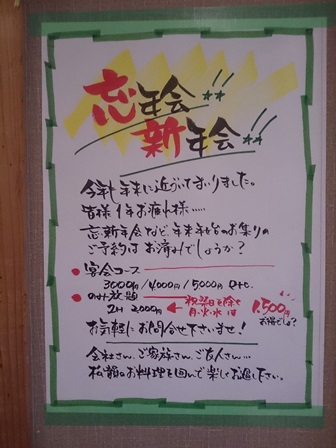 忘年会!!
新年会!!
今年も年末に近づいてまいりました。
皆様1年お疲れ様.....
忘新年会など、年末年始のお集りの
ご予約は お済みでしょうか?
●宴会コース
3000円/4000円/5000円 etc.
●のみ放題
2H 2000円 ← 祝祭日を除く
月・火・水は
1,500円
お得でしょ?
お気軽にお問合せ下さいませ!
会社さん、ご家族さん、ご友人さん...
お料理を囲んで楽しくお過し下さい。